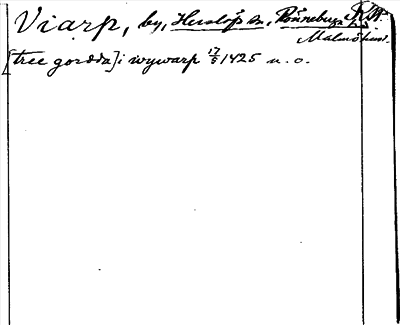 Viarp, by, Herslöfs sn, Rönnebergs hd.
Malmöhus l.
[tree gordda] i wywarp 17/5 1425 u. o.